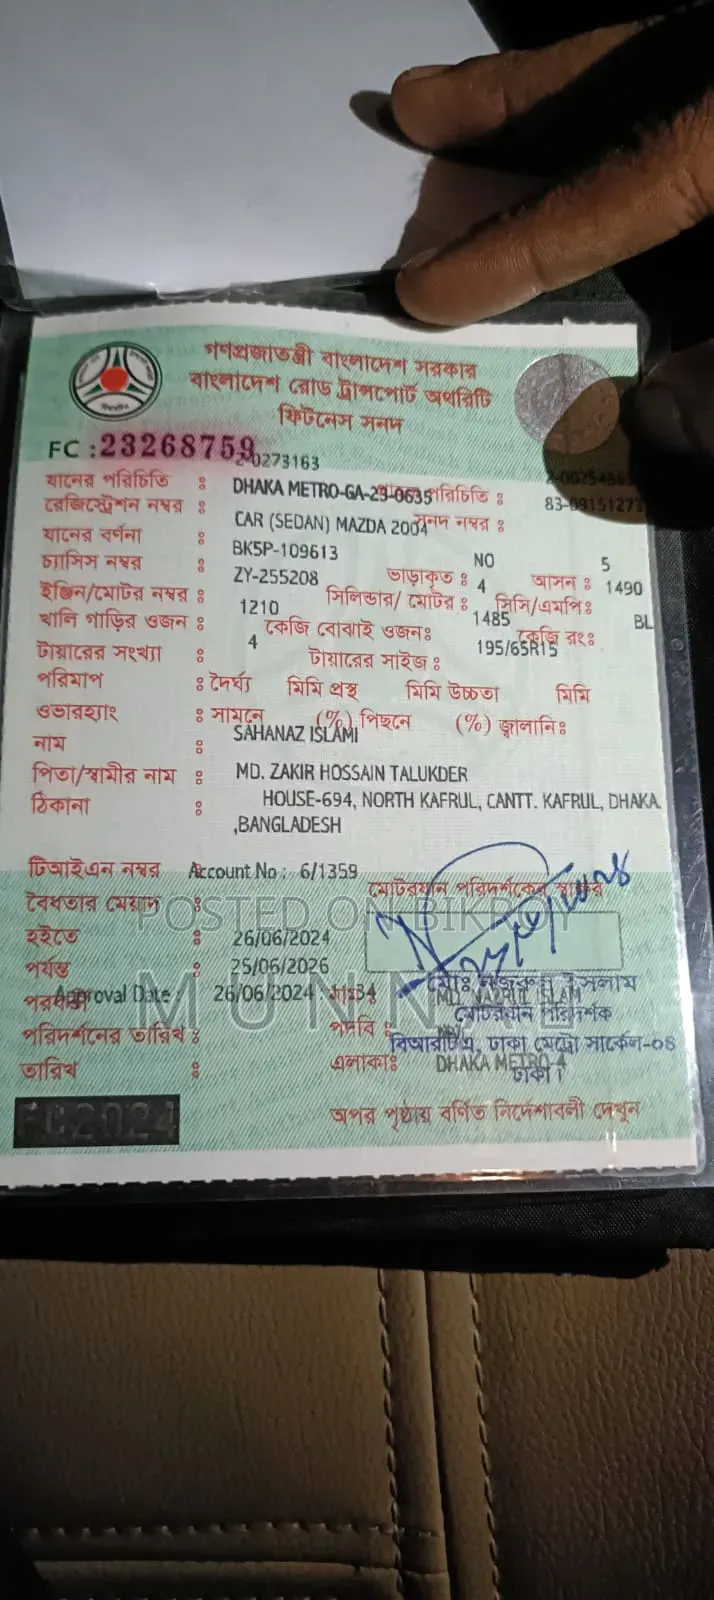 গণপ্রজাতন্ত্রী বাংলাদেশ সরকার
বাংলাদেশ রোড ট্রান্সপোর্ট অথরিটি
ফিটনেস সনদ
FC : 23268759
2-0273163
যানের পরিচিতি : পরিচিতি :
রেজিস্ট্রেশন নম্বর : DHAKA METRO-GA-23-0635 83-09151273
যানের বর্ণনা : CAR (SEDAN) MAZDA 2004 সনদ নম্বর :
চ্যাসিস নম্বর : BK5P-109613 ভাড়াকৃত : NO আসন : 5
ইঞ্জিন/মোটর নম্বর : ZY-255208 সিলিন্ডার/ মোটর : 4 সিসি/এমপি: 1490
খালি গাড়ির ওজন : 1210 কেজি বোঝাই ওজন: 1485 কেজি রং: BL
টায়ারের সংখ্যা : 4 টায়ারের সাইজ : 195/65R15
পরিমাপ : দৈর্ঘ্য মিমি প্রস্থ মিমি উচ্চতা মিমি
ওভারহ্যাং : সামনে (%) পিছনে (%) জ্বালানি:
নাম : SAHANAZ ISLAMI
পিতা/স্বামীর নাম : MD. ZAKIR HOSSAIN TALUKDER
ঠিকানা : HOUSE-694, NORTH KAFRUL, CANTT. KAFRUL, DHAKA
,BANGLADESH
টিআইএন নম্বর : Account No : 6/1359
মোটরযান পরিদর্শকের স্বাক্ষর
বৈধতার মেয়াদ :
হইতে : 26/06/2024
পর্যন্ত : 25/06/2026
Approval Date : 26/06/2024
মোঃ নজরুল ইসলাম
MD. NAZRUL ISLAM
পরিদর্শনের তারিখ : পদবি : মোটরযান পরিদর্শক
বিআরটিএ, ঢাকা মেট্রো সার্কেল-০৪
তারিখ : এলাকা: DHAKA METRO-4
ঢাকা।
FC2024
অপর পৃষ্ঠায় বর্ণিত নির্দেশাবলী দেখুন
POSTED ON BIKROY